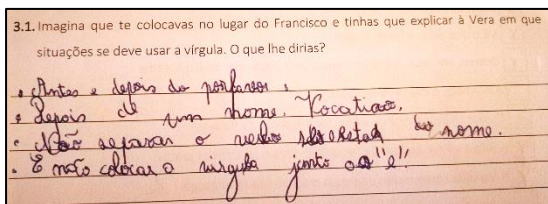 3.1. Imagina que te colocavas no lugar do Francisco e tinhas que explicar à Vera em que
situações se deve usar a vírgula. O que lhe dirias?
• Antes e depois do porfavor,
• depois de um nome. Vocativo,
• Não separar o verbo do nome.
• E não colocar a vírgula junto ao "e"!